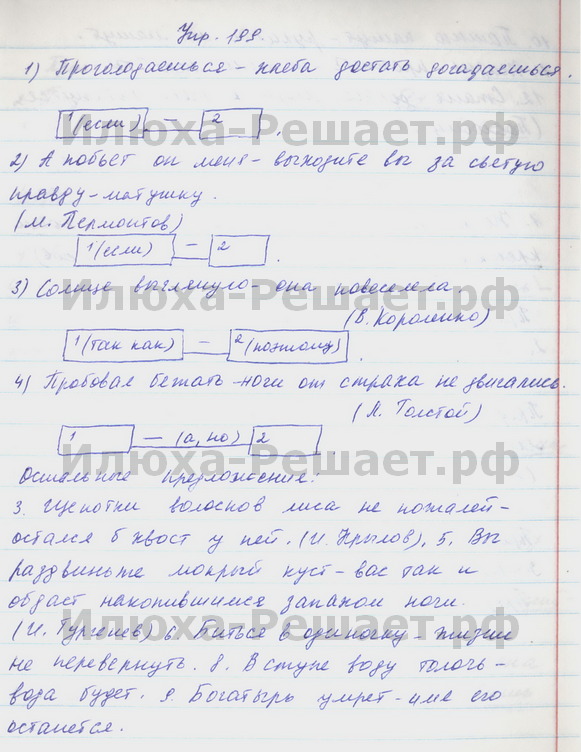 Упр. 199.
1) Проголодаешься – хлеба достать догадаешься.
1(если) — 2 .
2) А побьет он меня – выходите вы за святую
правду-матушку.
(М. Лермонтов)
1(если) — 2 .
3) Солнце выглянуло – она повеселела.
(В. Короленко)
1(так как) — 2(поэтому) .
4) Пробовал бежать – ноги от страха не двигались.
(Л. Толстой)
1 — (а, но) 2 .
Остальные предложения:
3. Щепотки волосков лиса не пожалей –
остался б хвост у ней. (И. Крылов), 5. Вы
раздвиньте мокрый куст – вас так и
обдаст накопившимся запахом ночи.
(И. Тургенев) 6. Биться в одиночку – жизни
не перевернуть. 8. В ступе воду толочь –
вода будет. 9. Богатырь умрет – имя его
останется.
Илюха-Решает.рф
Илюха-Решает.рф
Илюха-Решает.рф
Илюха-Решает.рф
Илюха-Решает.рф